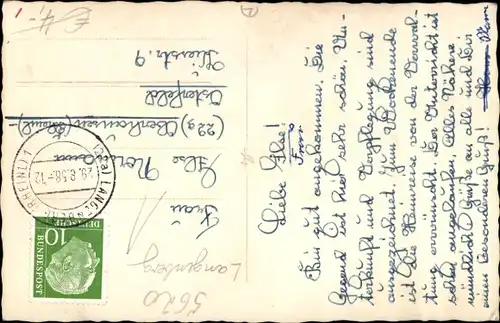 Liebe Else!
Bin gut angekommen. Die
Gegend ist hier sehr schön, Un-
terkunft und Verpflegung sind
ausgezeichnet. Zum Wochenende
ist die Heimreise von der Verwal-
tung erwünscht. Der Unterricht ist
schon angelaufen. Alles Nähere
mündlich. Grüße an alle und Dir
einen besonderen Gruß!
Frau
Else
(22a) Oberhausen
Osterfeld
9
29.8.58-12
(RHEINL)
10
DEUTSCHE
BUNDESPOST
Langenberg
5620
€ 4,-